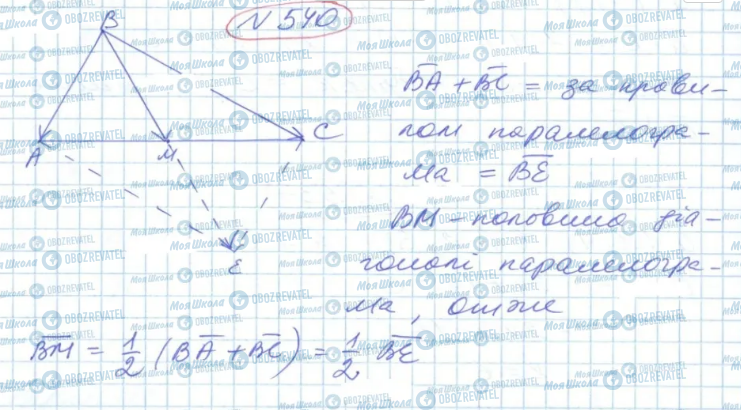 N 540
B
A
M
C
E
BA + BC = за прави-
лом паралелогра-
ма = BE
BM - половина діа-
гоналі паралелогра-
ма, отже
BM = 1/2 (BA + BC) = 1/2 BE
Моя Школа
OBOZREVATEL